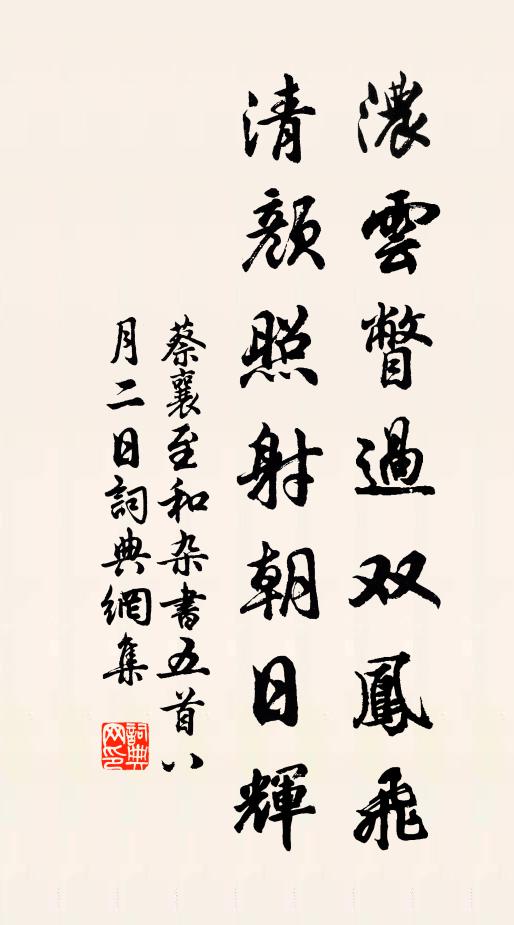 濃雲瞥過双鳳飛
清顏照射朝日輝
蔡襄至和杂書五首八
月二日詞典網集
詞典网印